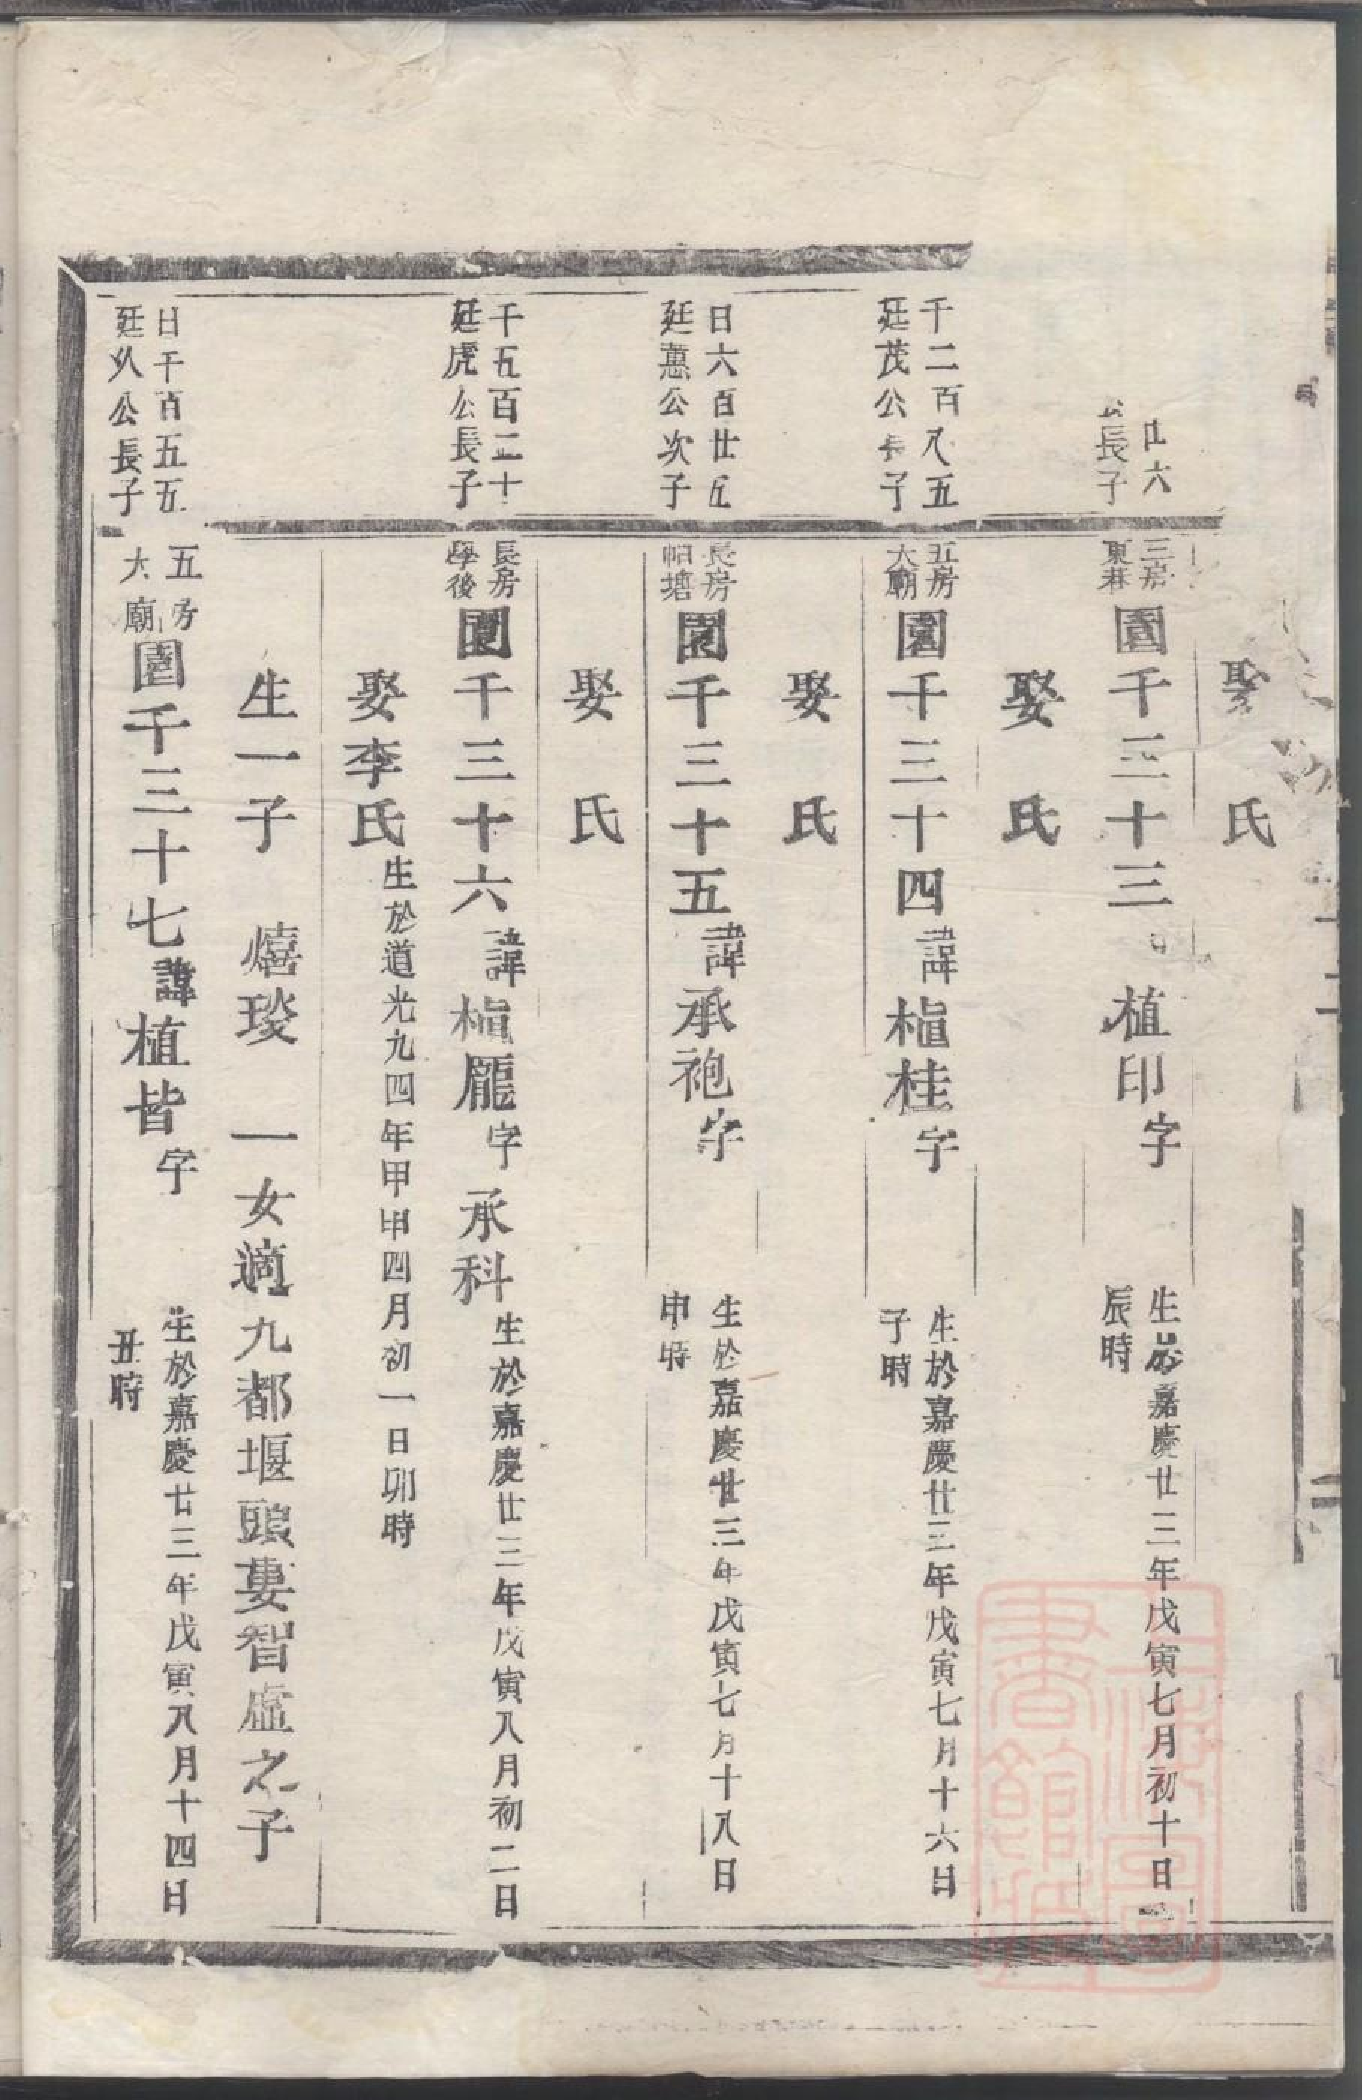 娶 氏
廿六
公長子
三房
東巷
園千三十三 植印字
生於嘉慶廿三年戊寅七月初十日
辰時
娶 氏
千二百八五
廷茂公長子
五房
大廟
園千三十四諱植桂字
生於嘉慶廿三年戊寅七月十六日
子時
娶 氏
日六百廿五
廷蕙公次子
長房
帕塘
園千三十五諱承袍字
生於嘉慶廿三年戊寅七月十八日
申時
娶 氏
千五百二十
廷虎公長子
長房
學後
園千三十六諱植龐字承科
生於嘉慶廿三年戊寅八月初二日
娶李氏
生於道光九四年甲申四月初一日卯時
生一子 熺琰 一女適九都堰頭婁智虛之子
日千百五五
廷公長子
五房
大廟
園千三十七諱植皆字
生於嘉慶廿三年戊寅八月十四日
丑時
上海圖
書館藏